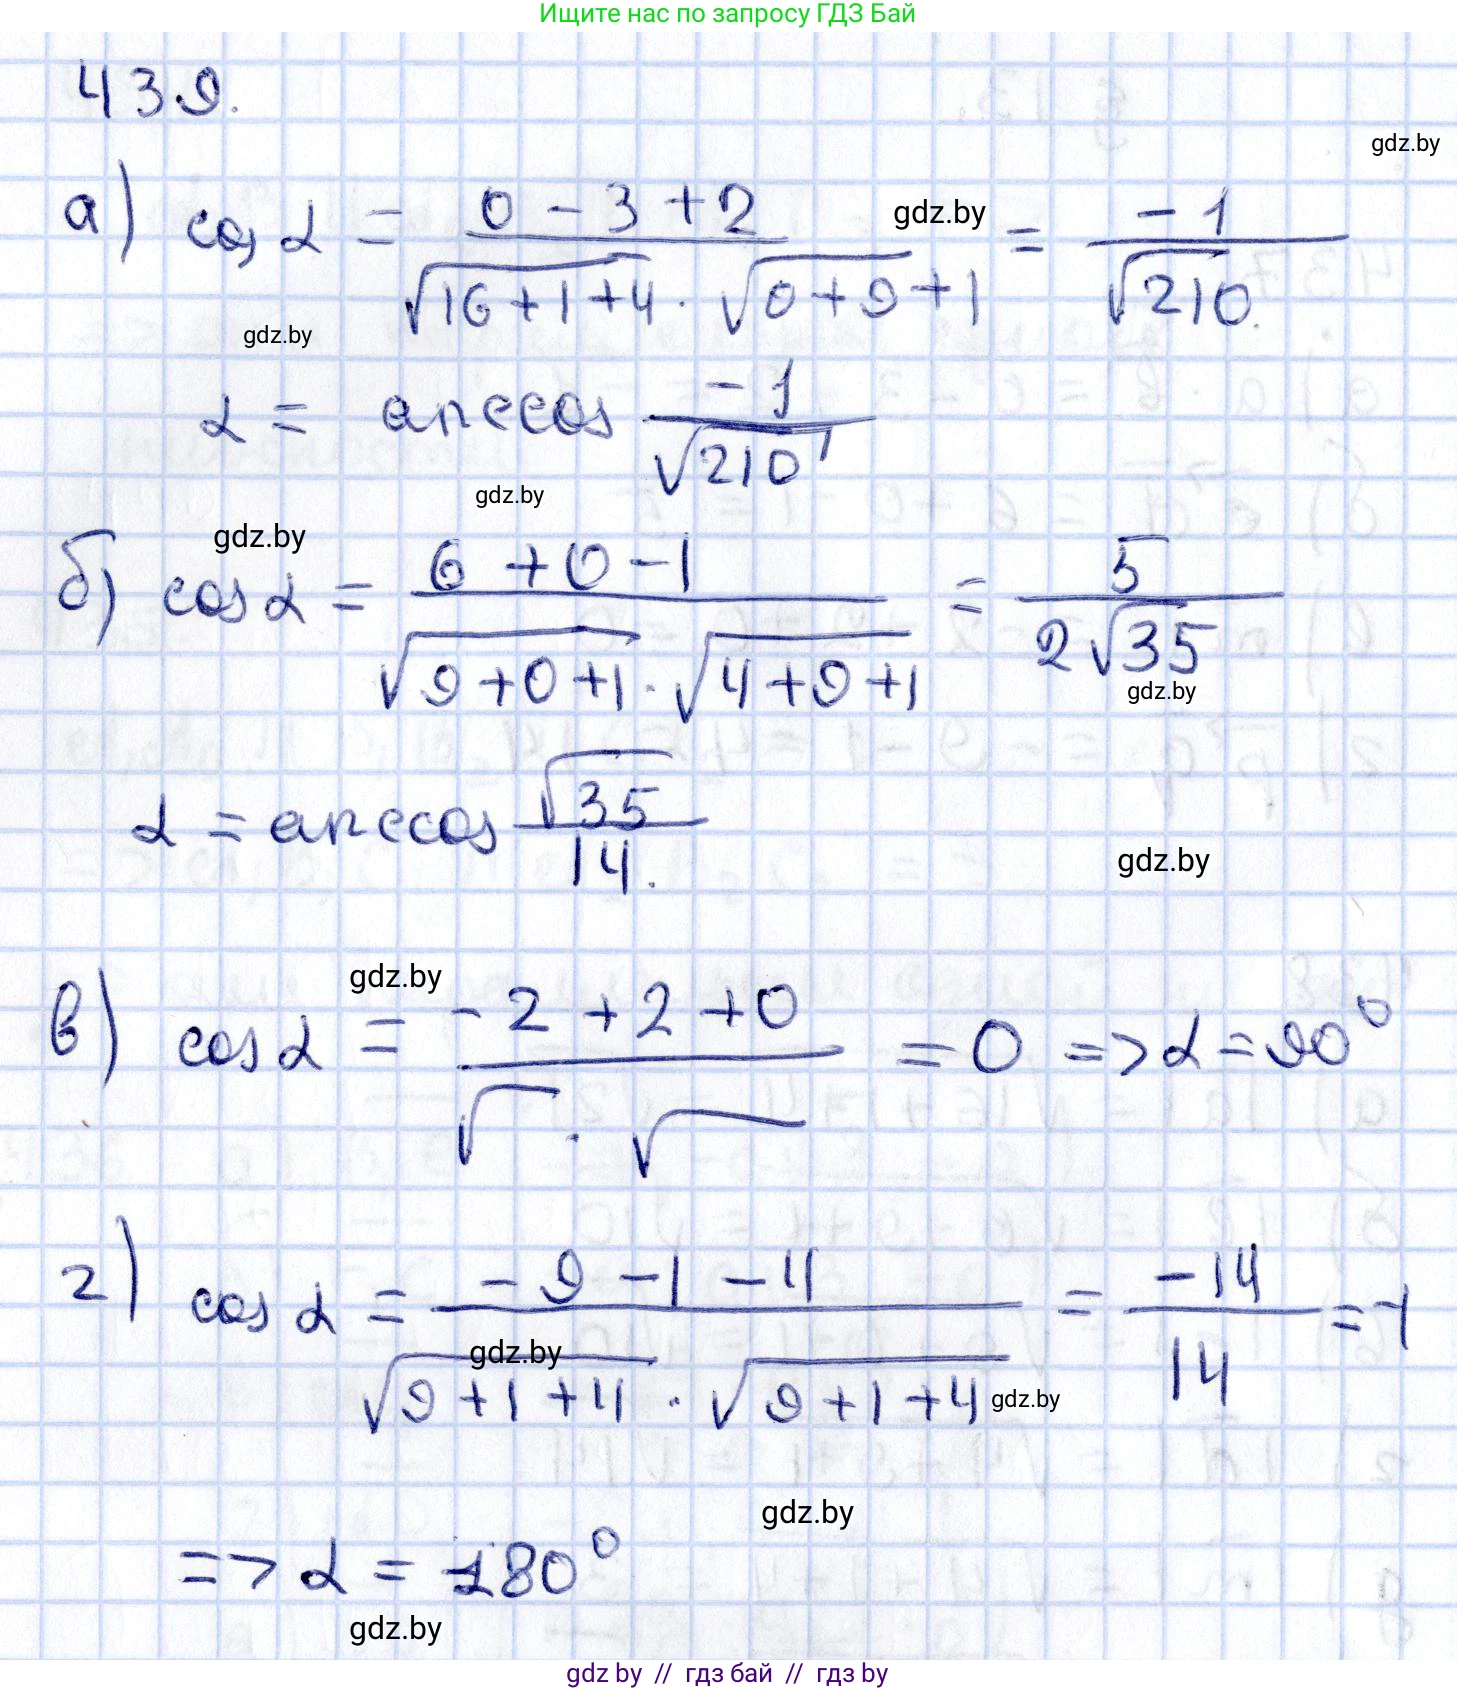 Ищите нас по запросу ГДЗ Бай
439.
gdz.by
а) cos α = (0 - 3 + 2) / (√16+1+4 · √0+9+1) = -1 / √210.
gdz.by
gdz.by
α = arccos -1 / √210
gdz.by
gdz.by
б) cos α = (6 + 0 - 1) / (√9+0+1 · √4+9+1) = 5 / 2√35
gdz.by
α = arccos √35 / 14.
gdz.by
gdz.by
в) cos α = (-2 + 2 + 0) / (√ · √) = 0 => α = 90°
г) cos α = (-9 - 1 - 4) / (√9+1+4 · √9+1+4) = -14 / 14 = -1
gdz.by
gdz.by
gdz.by
=> α = 180°
gdz.by
gdz.by // гдз бай // гдз by